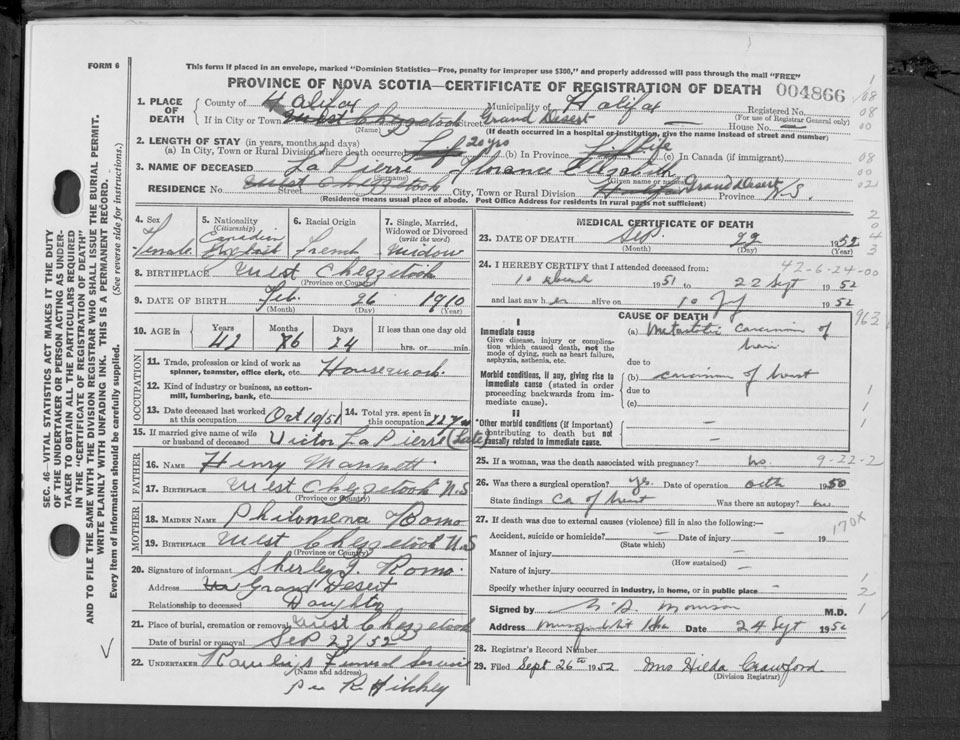 FORM 6
This form if placed in an envelope, marked "Dominion Statistics—Free, penalty for improper use $300," and properly addressed will pass through the mail "FREE"
PROVINCE OF NOVA SCOTIA—CERTIFICATE OF REGISTRATION OF DEATH
004866
SEC. 46—VITAL STATISTICS ACT MAKES IT THE DUTY
OF THE UNDERTAKER OR PERSON ACTING AS UNDER-
TAKER TO OBTAIN ALL THE PARTICULARS REQUIRED
IN THE "CERTIFICATE OF REGISTRATION OF DEATH"
AND TO FILE THE SAME WITH THE DIVISION REGISTRAR WHO SHALL ISSUE THE BURIAL PERMIT.
WRITE PLAINLY WITH UNFADING INK. THIS IS A PERMANENT RECORD.
Every item of information should be carefully supplied. (See reverse side for instructions.)
1. PLACE OF DEATH County of Halifax Municipality of Halifax Registered No. (For use of Registrar General only)
If in City or Town West Chezzetcook (Name) Street Grand Desert House No. —
(If death occurred in a hospital or institution, give the name instead of street and number)
2. LENGTH OF STAY (in years, months and days)
(a) In City, Town or Rural Division where death occurred Life 20 yrs (b) In Province Life (c) In Canada (if immigrant)
3. NAME OF DECEASED La Pierre (Surname) Florence Elizabeth (Given name or names)
RESIDENCE No. West Chezzetcook Street City, Town or Rural Division Halifax Grand Desert Province N.S.
(Residence means usual place of abode. Post Office Address for residents in rural parts not sufficient)
4. Sex Female
5. Nationality (Citizenship) Canadian English
6. Racial Origin French
7. Single, Married, Widowed or Divorced (write the word) Widow
8. BIRTHPLACE West Chezzetcook
(Province or Country)
9. DATE OF BIRTH Feb. 26 1910
(Month) (Day) (Year)
10. AGE in Years Months Days If less than one day old
42 6 24 hrs. or min.
OCCUPATION
11. Trade, profession or kind of work as spinner, teamster, office clerk, etc. Housework.
12. Kind of industry or business, as cotton-mill, lumbering, bank, etc.
13. Date deceased last worked at this occupation Oct 1951 14. Total yrs. spent in this occupation 22 yrs
15. If married give name of wife or husband of deceased Victor La Pierre (Late)
FATHER
16. NAME Henry Mannett
17. BIRTHPLACE West Chezzetcook N.S
(Province or Country)
MOTHER
18. MAIDEN NAME Philomena Romo
19. BIRTHPLACE West Chezzetcook N.S
(Province or Country)
20. Signature of informant Sherley J. Romo.
Address Grand Desert
Relationship to deceased Daughter
21. Place of burial, cremation or removal West Chezzetcook
Date of burial or removal Sep 23/52
22. UNDERTAKER Funeral Service
(Name and address)
per R.
MEDICAL CERTIFICATE OF DEATH
23. DATE OF DEATH Sep. 22 1952
(Month) (Day) (Year)
24. I HEREBY CERTIFY that I attended deceased from:
42-6-24-00
10 1951 to 22 Sept 1952
and last saw her alive on 10 1952
CAUSE OF DEATH
963
I
Immediate cause
Give disease, injury or complication which caused death, not the mode of dying, such as heart failure, asphyxia, asthenia, etc.
(a) Metastatic carcinoma of
due to
Morbid conditions, if any, giving rise to immediate cause (stated in order proceeding backwards from immediate cause).
(b) carcinoma of breast
due to
(c)
II
Other morbid conditions (if important) contributing to death but not causally related to immediate cause.
25. If a woman, was the death associated with pregnancy? no 9-22-2
26. Was there a surgical operation? yes. Date of operation Oct 1950
State findings Ca of breast Was there an autopsy? no
27. If death was due to external causes (violence) fill in also the following:— 170X
Accident, suicide or homicide? — Date of injury — 19
(State which)
Manner of injury —
(How sustained)
Nature of injury —
Specify whether injury occurred in industry, in home, or in public place —
Signed by Morrison M.D.
Address Date 24 Sept 1952
28. Registrar's Record Number
29. Filed Sept 26th 1952 Mrs Hilda Crawford
(Division Registrar)